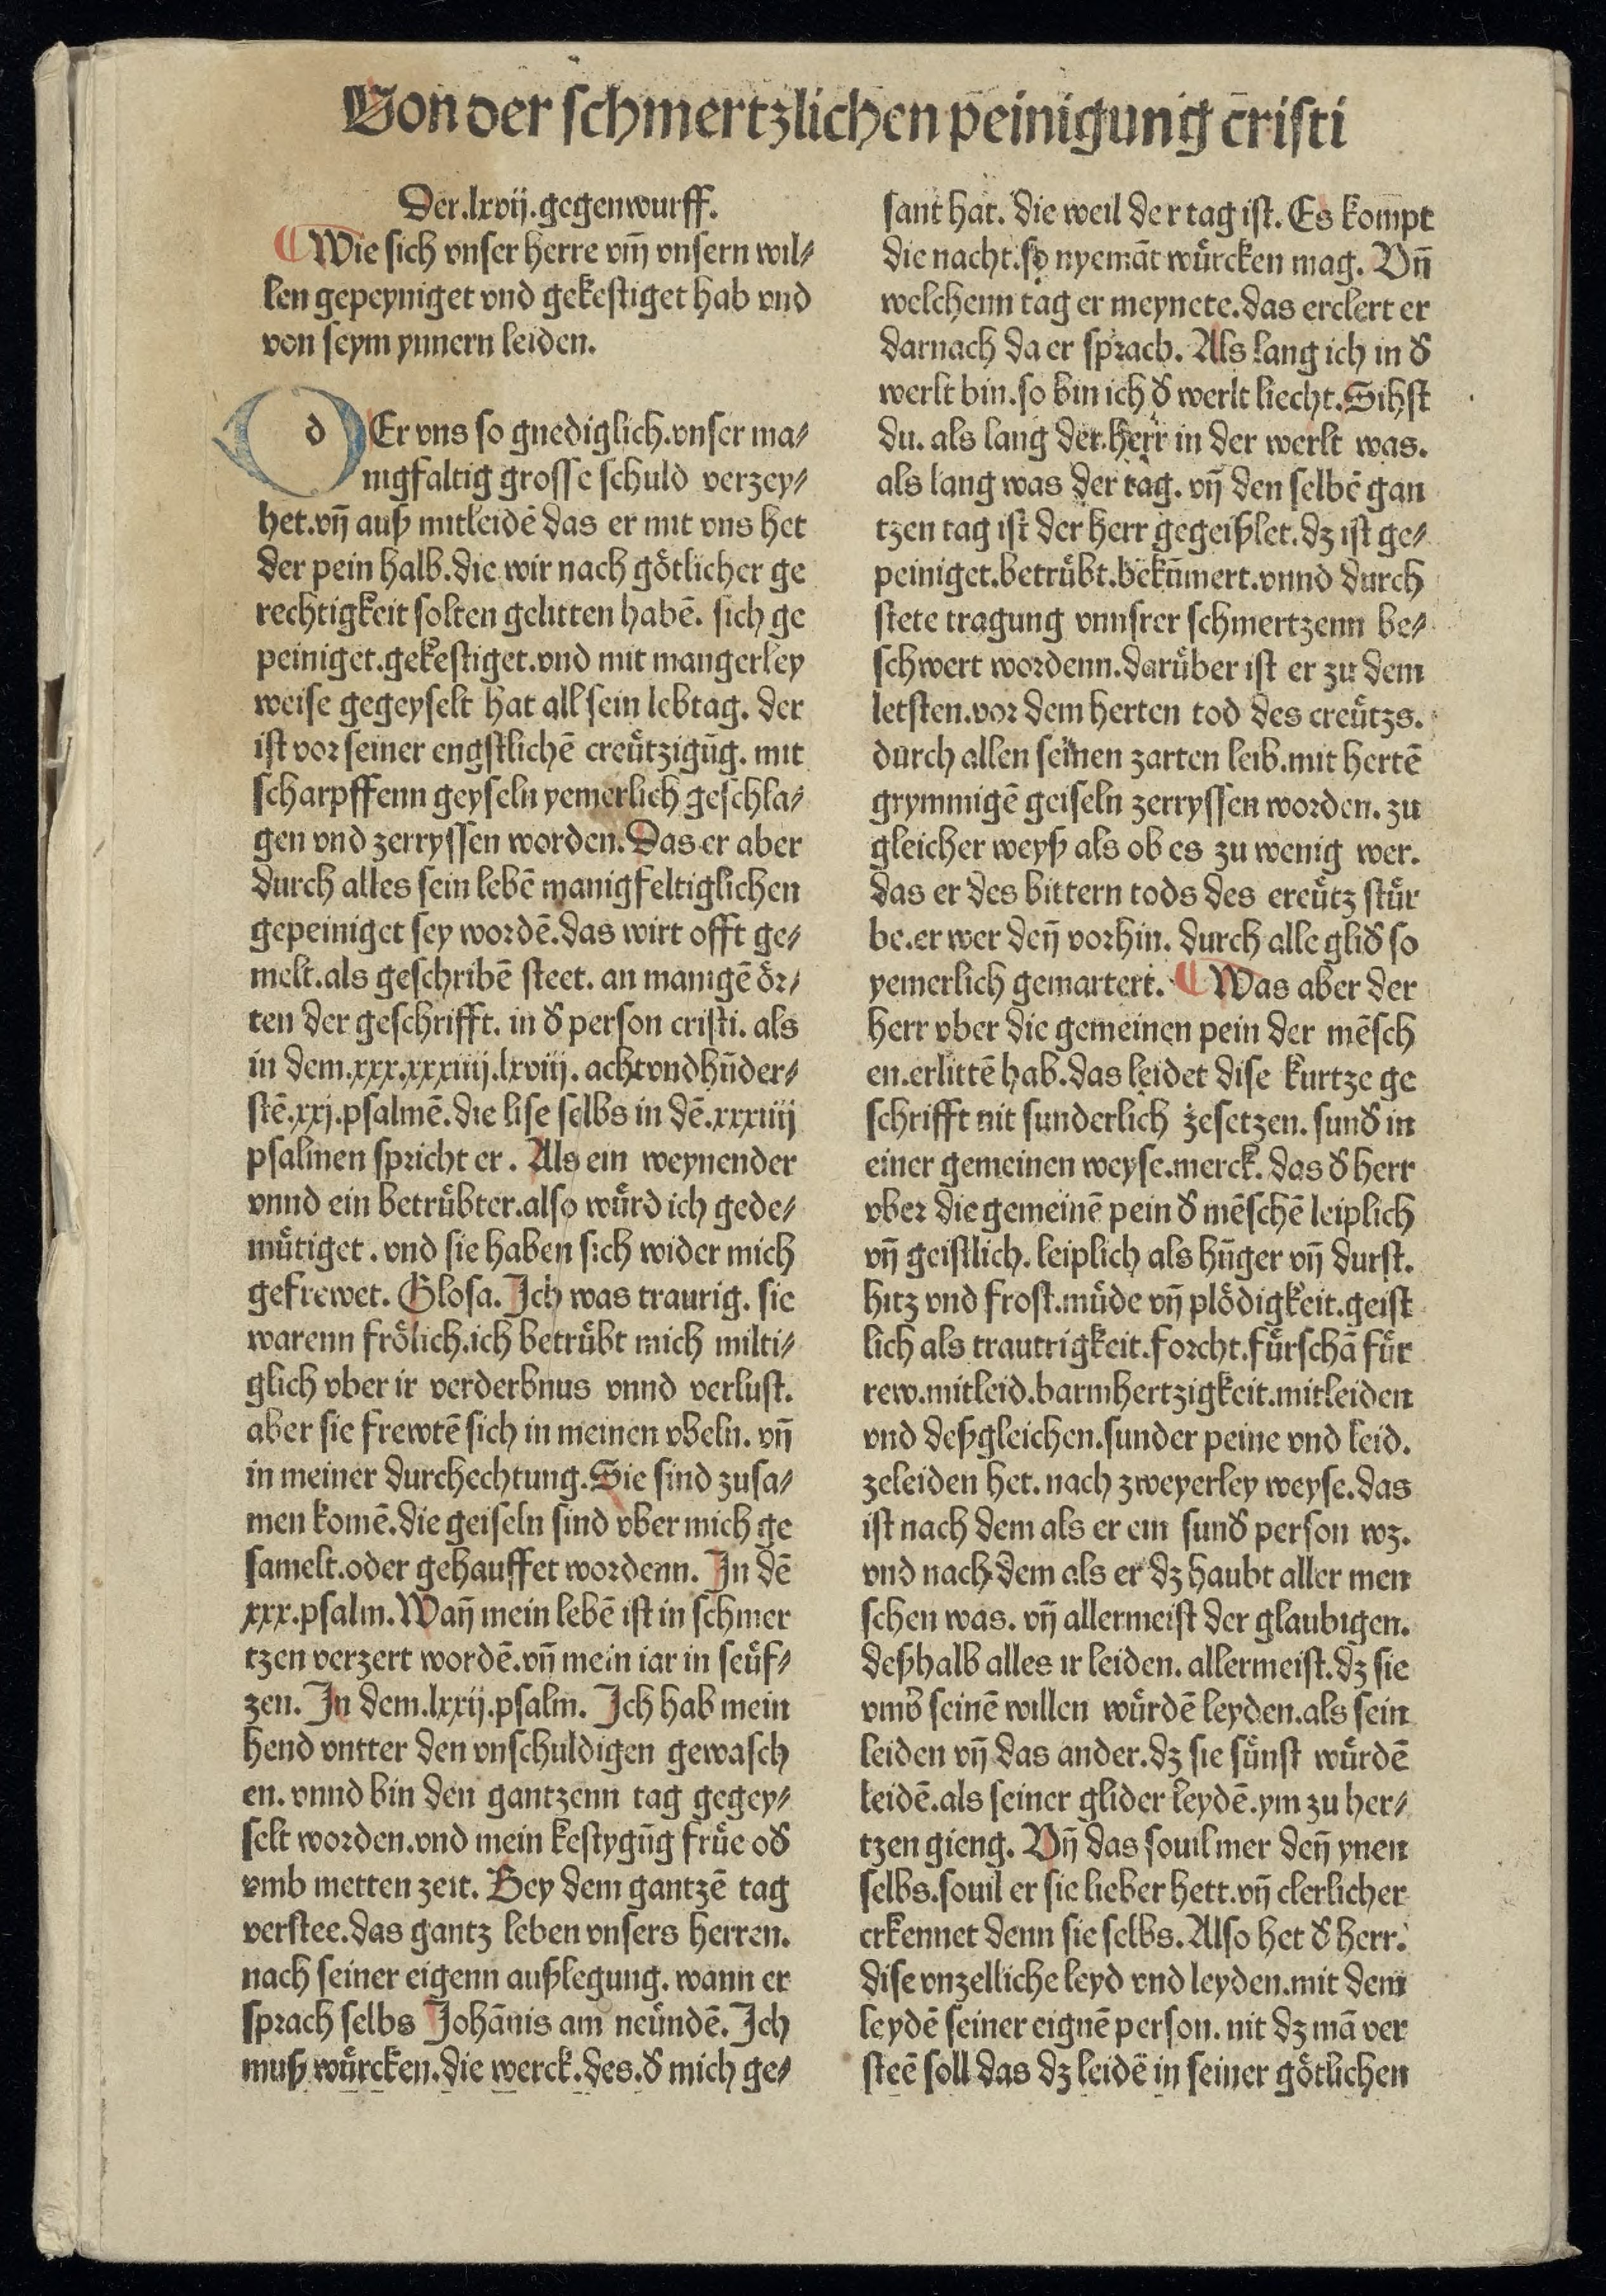 Von der schmertzlichen peinigung cristi
Der .lxvij. gegenwurff.
Wie sich vnser herre vm̄ vnsern wil⸗
len gepeyniget vnd gekestiget hab vnd
von seym ynnern leiden.
dEr vns so gnediglich.vnser ma⸗
nigfaltig grosse schuld verzey⸗
het.vn̄ auß mitleidē das er mit vns het
der pein halb.die wir nach götlicher ge
rechtigkeit solten gelitten habē. sich ge
peiniget.gekestiget.vnd mit mangerley
weise gegeyselt hat all sein lebtag. der
ist vor seiner engstlichē creützigūg. mit
scharpffenn geyseln yemerlich geschla⸗
gen vnd zerryssen worden. Das er aber
durch alles sein lebē manigfeltiglichen
gepeiniget sey wordē.das wirt offt ge⸗
melt.als geschribē steet. an manigē ör⸗
ten der geschrifft. in đ person cristi. als
in dem.xxx.xxxiiij.lxviij. achtvndhūder⸗
stē.xxj.psalmē.die lise selbs in dē.xxxiiij
psalmen spricht er. Als ein weynender
vnnd ein betrübter.also würd ich gede⸗
mütiget. vnd sie haben sich wider mich
gefrewet. Glosa. Ich was traurig. sie
warenn frölich.ich betrübt mich milti⸗
glich vber ir verderbnus vnnd verlust.
aber sie frewtē sich in meinen vbeln. vn̄
in meiner durchechtung. Sie sind zusa⸗
men komē.die geiseln sind vber mich ge
samelt.oder gehauffet wordenn. In dē
xxx.psalm. Wan̄ mein lebē ist in schmer
tzen verzert wordē.vn̄ mein iar in seüf⸗
zen. In dem.lxxij.psalm. Ich hab mein
hend vntter den vnschuldigen gewasch
en. vnnd bin den gantzenn tag gegey⸗
selt worden.vnd mein kestygūg früe ođ
vmb metten zeit. Bey dem gantzē tag
verstee.das gantz leben vnsers herren.
nach seiner eigenn außlegung. wann er
sprach selbs Johānis am neündē. Ich
muß würcken.die werck.des.đ mich ge⸗
sant hat. die weil der tag ist. Es kompt
die nacht.so nyemāt würcken mag. Vn̄
welchenn tag er meynete.das erclert er
darnach da er sprach. Als lang ich in đ
werlt bin.so bin ich đ werlt liecht. Sihst
du. als lang der herr in der werlt was.
als lang was der tag. vn̄ den selbē gan
tzen tag ist der herr gegeißlet.dz ist ge⸗
peiniget.betrübt.bekūmert.vnnd durch
stete tragung vnnsrer schmertzenn be⸗
schwert wordenn.darüber ist er zu dem
letsten.vor dem herten tod des creützs.
durch allen seinen zarten leib.mit hertē
grymmigē geiseln zerryssen worden. zu
gleicher weyß als ob es zu wenig wer.
das er des bittern tods des creütz stür
be.er wer den̄ vorhin. durch alle gliđ so
yemerlich gemartert. Was aber der
herr vber die gemeinen pein der mēsch
en.erlittē hab.das leidet dise kurtze ge
schrifft nit sunderlich zesetzen. sunđ in
einer gemeinen weyse.merck. das đ herr
vber die gemeinē pein đ mēschē leiplich
vn̄ geistlich. leiplich als hūger vn̄ durst.
hitz vnd frost.müde vn̄ plödigkeit.geist
lich als trautrigkeit.forcht.fürschā für
rew.mitleid.barmhertzigkeit.mitleiden
vnd deßgleichen.sunder peine vnd leid.
zeleiden het. nach zweyerley weyse.das
ist nach dem als er ein sunđ person wz.
vnd nach dem als er dz haubt aller men
schen was. vn̄ allermeist der glaubigen.
deßhalb alles ir leiden. allermeist.dz sie
vmb seinē willen würdē leyden.als sein
leiden vn̄ das ander.dz sie sünst würdē
leidē.als seiner glider leydē.ym zu her⸗
tzen gieng. Vn̄ das souil mer den̄ ynen
selbs.souil er sie lieber hett.vn̄ clerlicher
erkennet denn sie selbs. Also het đ herr.
dise vnzelliche leyd vnd leyden.mit dem
leydē seiner eignē person. nit dz mā ver
steē soll das dz leidē in seiner götlichen